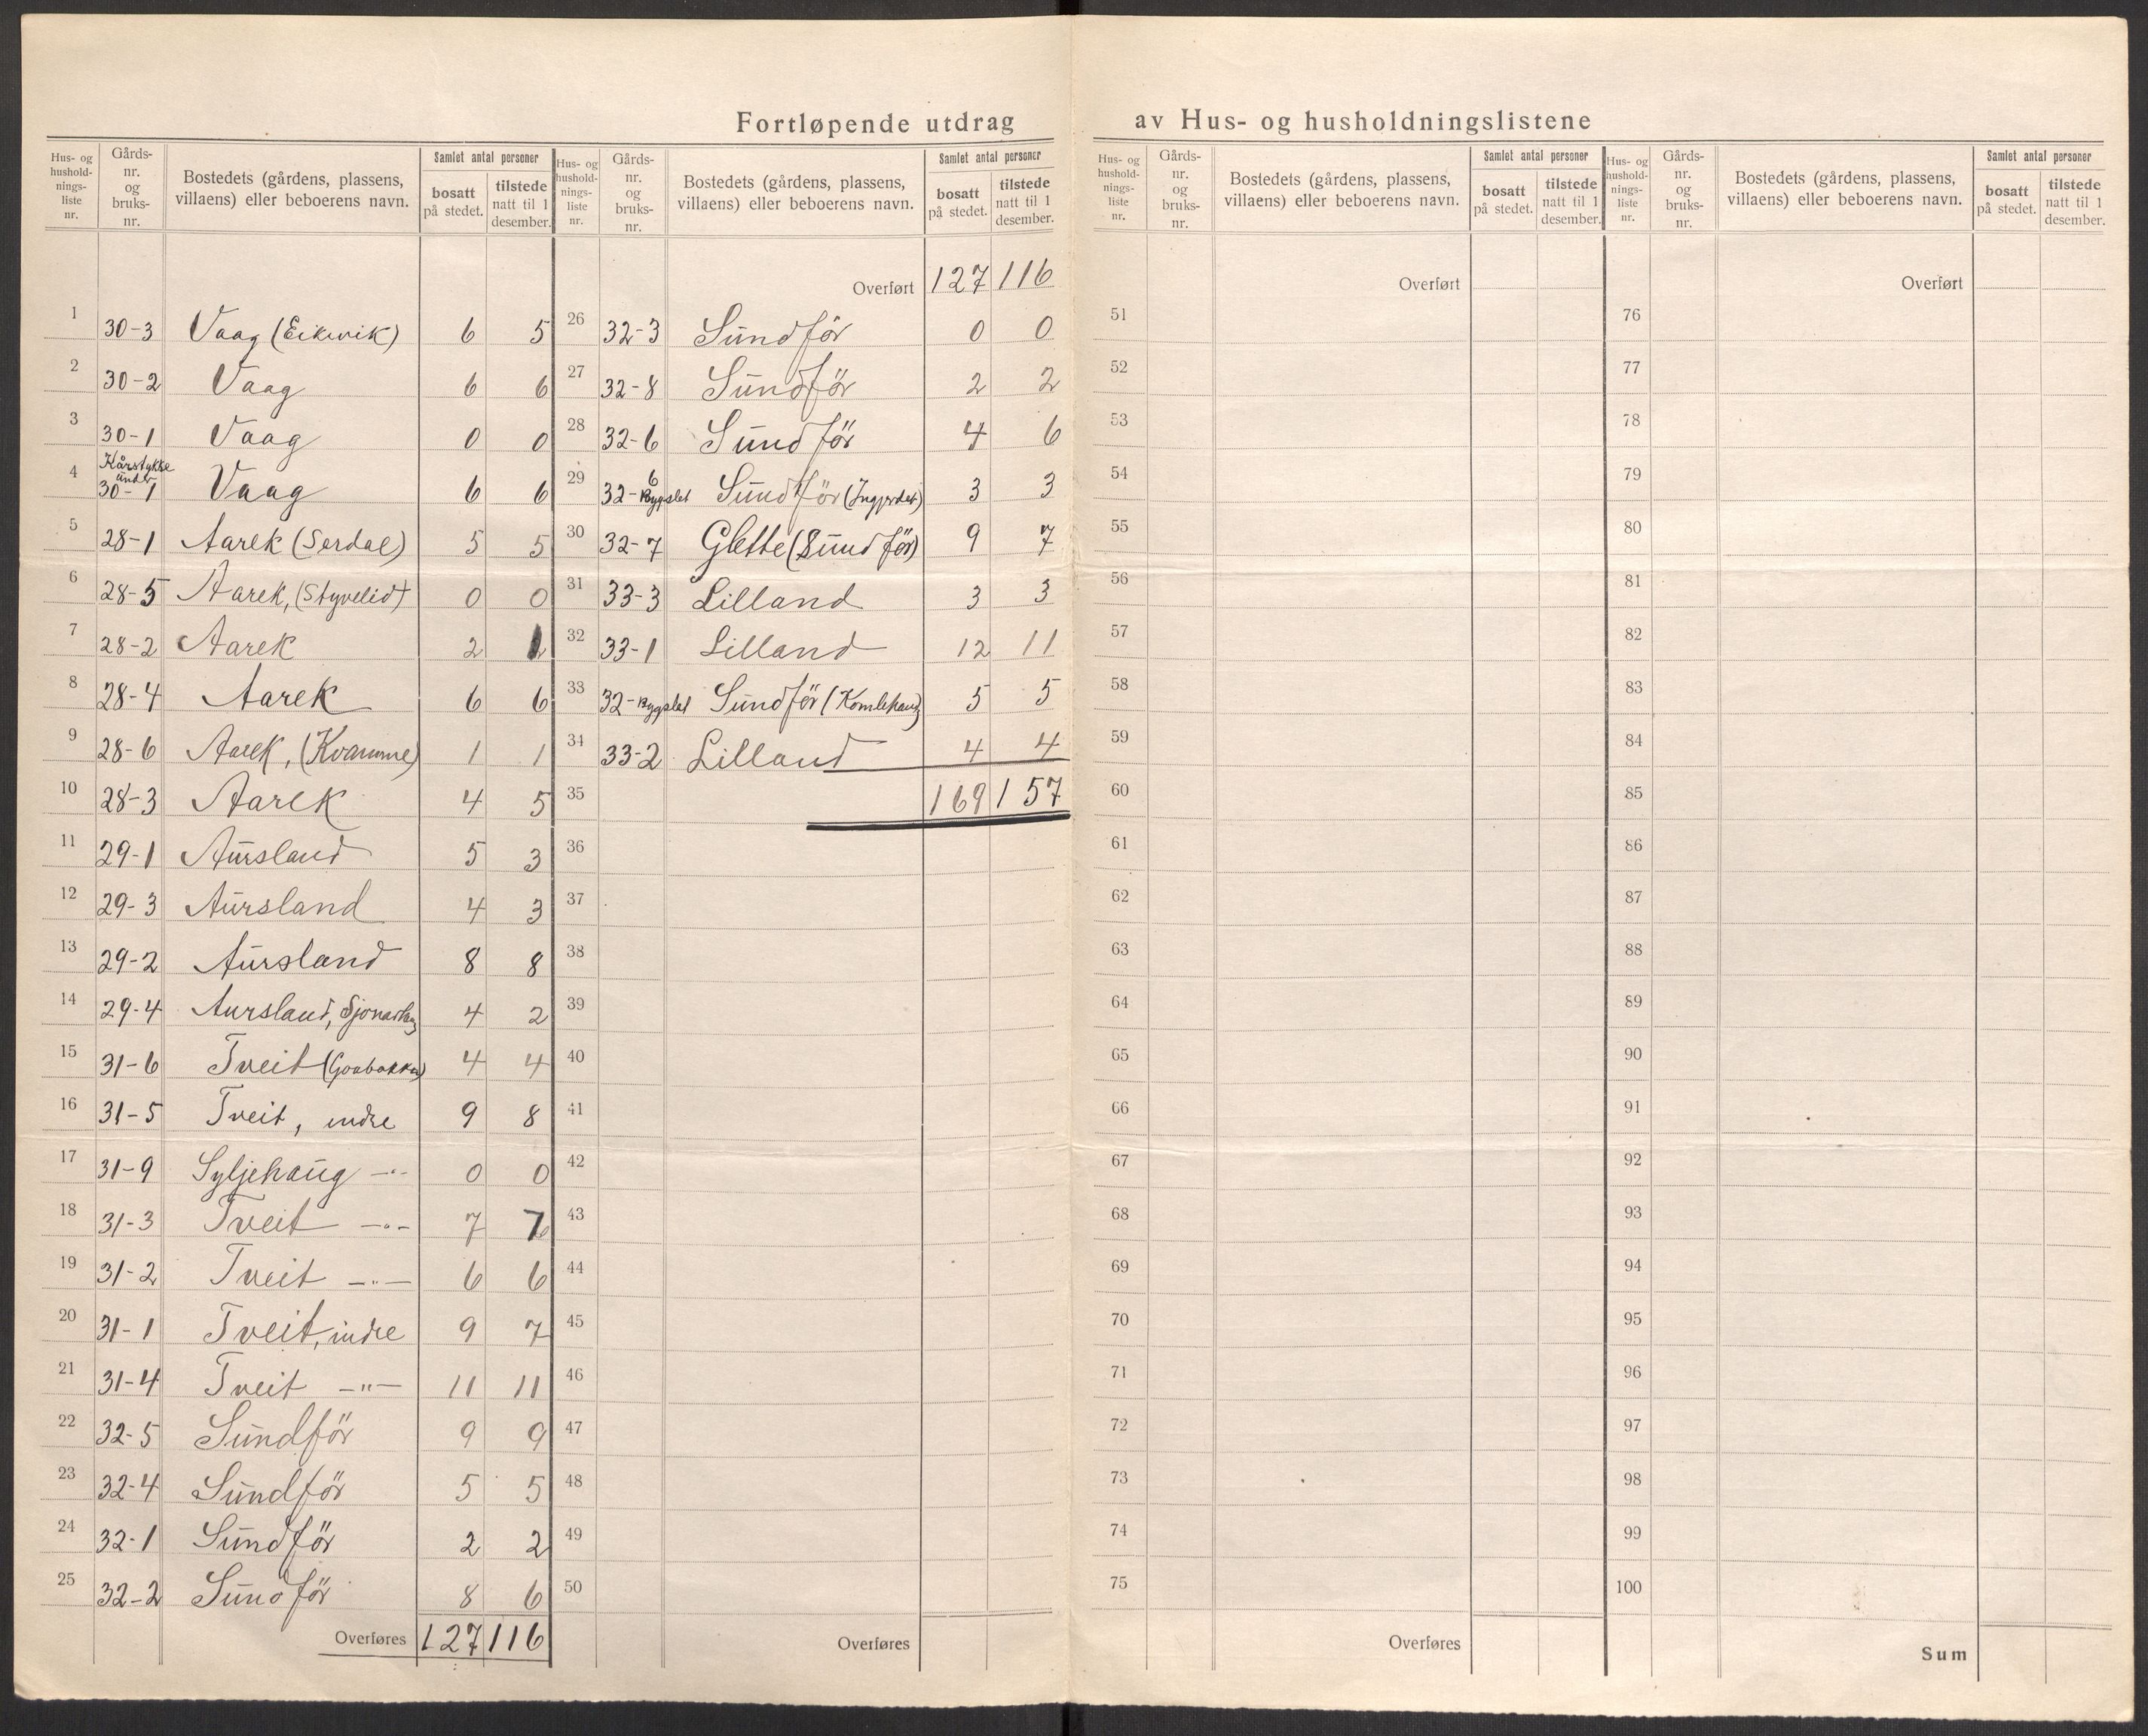 Fortløpende utdrag av Hus- og husholdningslistene
Hus- og hushold-nings-liste nr. Gårds-nr. og bruks-nr. Bostedets (gårdens, plassens, villaens) eller beboerens navn. Samlet antal personer bosatt på stedet. tilstede natt til 1 desember.
1 30-3 Vaag (Eikevik) 6 5
2 30-2 Vaag 6 6
3 30-1 Vaag 0 0
4 Kårstykke under 30-1 Vaag 6 6
5 28-1 Aarek (Serdal) 5 5
6 28-5 Aarek, (Styvelid) 0 0
7 28-2 Aarek 2 1
8 28-4 Aarek 6 6
9 28-6 Aarek, (Kvamme) 1 1
10 28-3 Aarek 4 5
11 29-1 Aursland 5 3
12 29-3 Aursland 4 3
13 29-2 Aursland 8 8
14 29-4 Aursland, 4 2
15 31-6 Tveit (Goabakka) 4 4
16 31-5 Tveit, indre 9 8
17 31-9 Syljehaug -"- 0 0
18 31-3 Tveit -"- 7 7
19 31-2 Tveit -"- 6 6
20 31-1 Tveit, indre 9 7
21 31-4 Tveit -"- 11 11
22 32-5 Sundför 9 9
23 32-4 Sundför 5 5
24 32-1 Sundför 2 2
25 32-2 Sundför 8 6
Overføres 127 116
Hus- og hushold-nings-liste nr. Gårds-nr. og bruks-nr. Bostedets (gårdens, plassens, villaens) eller beboerens navn. Samlet antal personer bosatt på stedet. tilstede natt til 1 desember.
Overført 127 116
26 32-3 Sundför 0 0
27 32-8 Sundför 2 2
28 32-6 Sundför 4 6
29 32-6 Bygslet Sundför 3 3
30 32-7 Glette (Sundför) 9 7
31 33-3 Lilland 3 3
32 33-1 Lilland 12 11
33 32-Bygslet Sundför (Komlehaug) 5 5
34 33-2 Lilland 4 4
35 169 157
36
37
38
39
40
41
42
43
44
45
46
47
48
49
50
Overføres
Hus- og hushold-nings-liste nr. Gårds-nr. og bruks-nr. Bostedets (gårdens, plassens, villaens) eller beboerens navn. Samlet antal personer bosatt på stedet. tilstede natt til 1 desember.
Overført
51
52
53
54
55
56
57
58
59
60
61
62
63
64
65
66
67
68
69
70
71
72
73
74
75
Overføres
Hus- og husholdnings-liste nr. Gårds-nr. og bruks-nr. Bostedets (gårdens, plassens, villaens) eller beboerens navn. Samlet antal personer bosatt på stedet. tilstede natt til 1 desember.
Overført
76
77
78
79
80
81
82
83
84
85
86
87
88
89
90
91
92
93
94
95
96
97
98
99
100
Sum